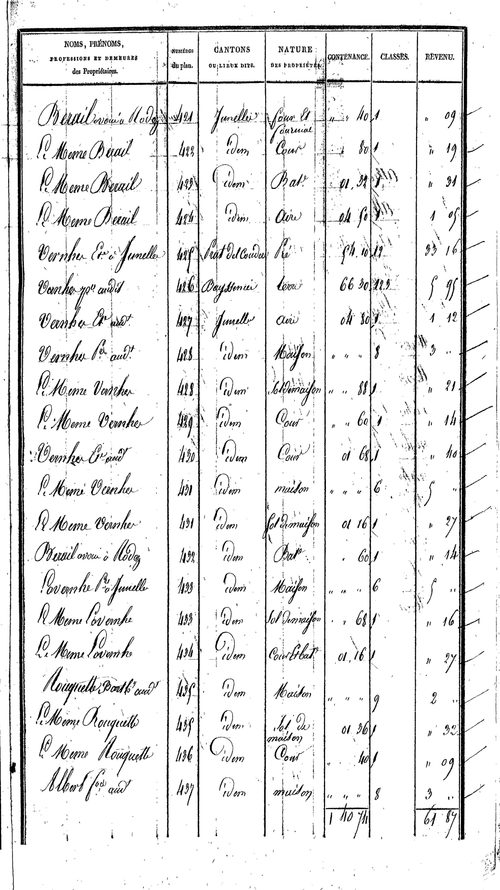 NOMS, PRÉNOMS, PROFESSIONS ET DEMEURES des Propriétaires. NUMÉROS du plan. CANTONS OU LIEUX DITS. NATURE DES PROPRIÉTÉS. CONTENANCE. CLASSES. REVENU.
Berail avoué à Rodez 421 Junelle four et fournial " " 40 1 " 09
Le Meme Berail 422 idem Cour " 80 1 " 19
Le Meme Berail 423 idem Bat. 01 32 1 " 31
Le Meme Berail 424 idem Aire 04 50 1 1 05
Vernhe à Junelle 425 Prat del Coudere Pré 54 10 12 33 16
Vernhe audit 426 terre 66 30 123 5 95
Vernhe audt 427 Junelle aire 04 80 1 1 12
Vernhe audt 428 idem Maison " " " 8 3 "
Le Meme Vernhe 428 idem Sol de maison " " 88 1 " 21
Le Meme Vernhe 429 idem Cour " 60 1 " 14
Vernhe audt 430 idem Cour 01 68 1 " 40
Le Meme Vernhe 431 idem maison " " " 6 5 "
Le Meme Vernhe 431 idem Sol de maison 01 16 1 " 27
Berail avoué à Rodez 432 idem Bat. " 60 1 " 14
Lavernhe à Junelle 433 idem Maison " " " 6 5 "
Le Meme Lavernhe 433 idem Sol de maison " 68 1 " 16
Le Meme Lavernhe 434 idem Cour et bat. 01 16 1 " 27
Rouquette audt 435 idem Maison " " " 9 2 "
Le Meme Rouquette 435 idem Sol de maison 01 36 1 " 32
Le Meme Rouquette 436 idem Cour " 40 1 " 09
Albert audt 437 idem maison " " " 8 3 "
1 40 74 61 87